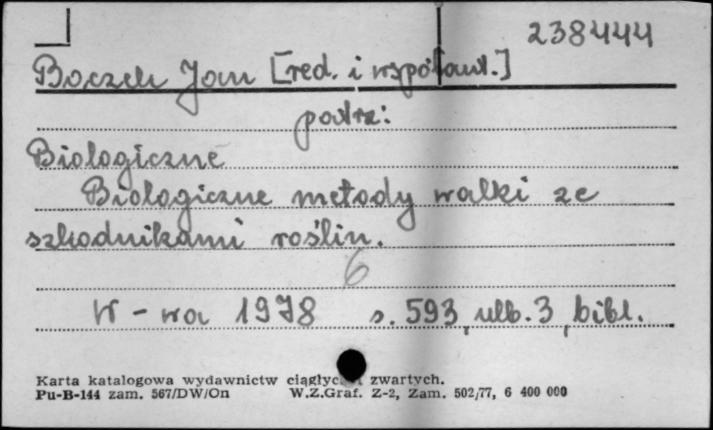 238444
Boczek Jan [red. i współaut.]
patrz:
Biologiczne
Biologiczne metody walki ze
szkodnikami roślin.
6
W-wa 1978 s. 593, nlb. 3, bibl.
Karta katalogowa wydawnictw ciągłych zwartych.
Pu-B-144 zam. 567/DW/On W.Z.Graf. Z-2, Zam. 502/77, 6 400 000